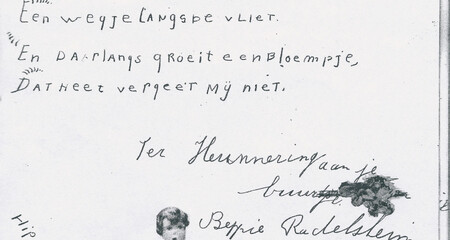 Een wegje langs de vliet.
En daarlangs groeit een bloempje,
Dat heet vergeet mij niet.
Ter Herinnering aan je
Beppie Rudelsheim
Hip